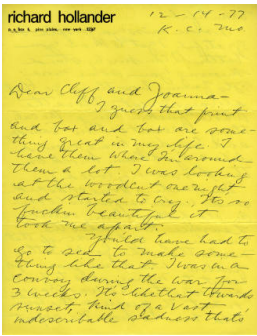 richard hollander
12-14-77
K.C. Mo.
Dear Cliff and Joanna—
I guess that print
and box and box are some-
thing great in my life. I
have them where I'm around
them a lot. I was looking
at the woodcut one night
and started to cry. Its so
fuckin beautiful it
took me apart.
You'd have had to
go to sea to make some-
thing like that. I was in a
convoy during the war for
3 weeks. It's like that towards
sunset, kind of a vast
indescribable sadness that's